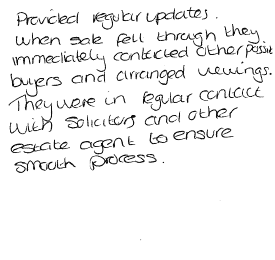 Provided regular updates.
When sale fell through they
immediately contacted other possible
buyers and arranged viewings.
They were in regular contact
with solicitors and other
estate agent to ensure
smooth process.